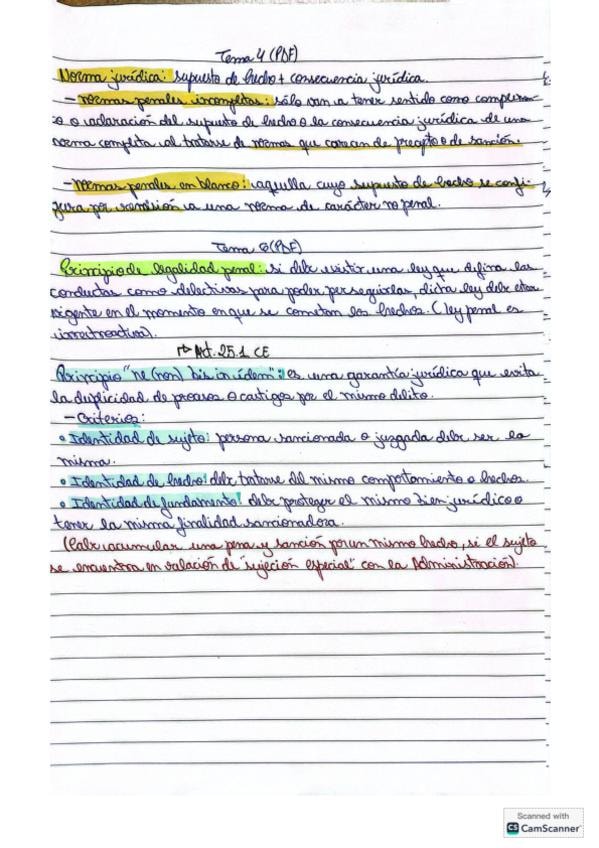 Tema 4 (PDF)
Norma jurídica: supuesto de hecho + consecuencia jurídica.
- Normas penales incompletas: sólo van a tener sentido como complemen-
to o aclaración del supuesto de hecho o la consecuencia jurídica de una
norma completa al tratarse de normas que carecen de precepto o de sanción.
- Normas penales en blanco: aquella cuyo supuesto de hecho se confi-
gura por remisión a una norma de carácter no penal.
Tema 6 (PDF)
Principio de legalidad penal: si debe existir una ley que defina las
conductas como delictivas para poder perseguirlas, dicha ley debe estar
vigente en el momento en que se cometan los hechos. (ley penal es
irretroactiva).
↳ Art. 25.1 CE
Principio "ne (non) bis in ídem": es una garantía jurídica que evita
la duplicidad de procesos o castigos por el mismo delito.
- Criterios:
• Identidad de sujeto: persona sancionada o juzgada debe ser la
misma.
• Identidad de hecho: debe tratarse del mismo comportamiento o hechos.
• Identidad de fundamento: debe proteger el mismo bien jurídico o
tener la misma finalidad sancionadora.
(Cabe acumular una pena y sanción por un mismo hecho, si el sujeto
se encuentra en relación de "sujeción especial" con la Administración).
Scanned with
CS CamScanner